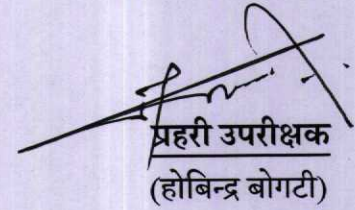 प्रहरी उपरीक्षक
(होबिन्द्र बोगटी)